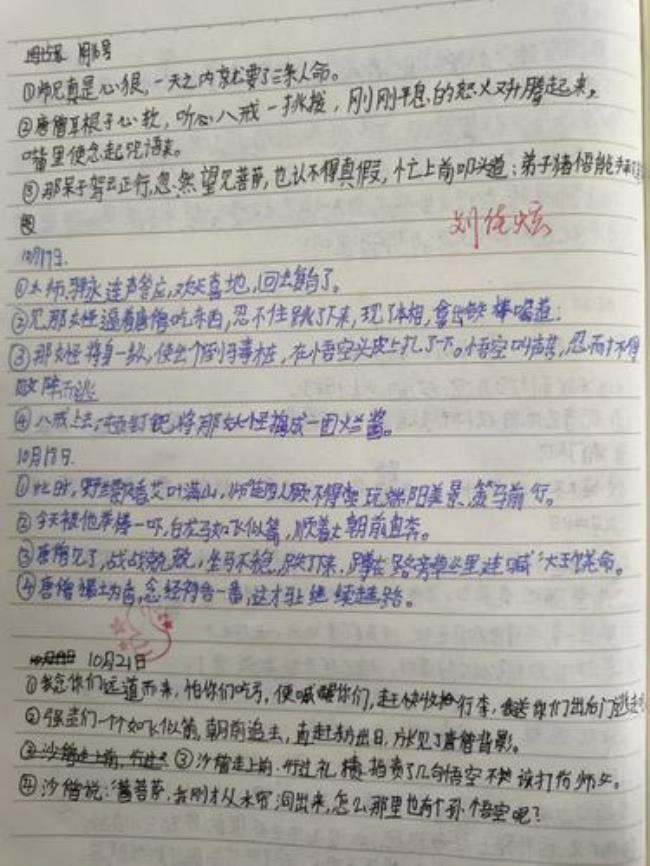 ①师兄真是心狠,一天之内京尤要了三条人命。
②唐僧耳根子心软,听心八戒一挑拨,刚刚平息的怒火又升腾起来,
嘴里便念起咒语来。
③那呆子驾云正行,忽然望见菩萨,也认不得真假,忙上前叩头道:弟子猪悟能
刘佳炫
10月17日.
连声答应,欢天喜地,回去复命了。
②见那女怪逼着唐僧吃东西,忍不住跳了下来,现了本相,拿出铁棒喝道:
③那女怪将身一纵,使出个倒马毒桩,在悟空头皮上扎了一下。悟空叫声苦,忍耐不得
败阵而逃
④八戒上去,一顿钉钯将那女怪捣成一团烂酱。
10月18日.
①此时,艾叶满山,师徒四人顾不得赏玩端阳美景,策马前行。
②今天被他举棒一吓,白龙马如飞似箭,顺着大朝前直奔。
③唐僧见了,战战兢兢,坐马不稳,跌了下来,蹲在路旁草丛里连喊“大王饶命。
④唐僧撮土为香,念经祷告一番,这才让继续赶路。
10月21日
①我念你们远道而来,怕你们吃亏,便喊醒你们,赶快收拾行李,我送你们出后门逃走
②强盗们一个个如飞似箭,朝前追去,直赶东方出日,才见了唐僧背影。
③沙僧走上前,行过礼,指责了几句悟空不该打伤师父。
④沙僧说:“菩萨,我刚才从水帘洞出来,怎么那里也有个孙悟空呢?